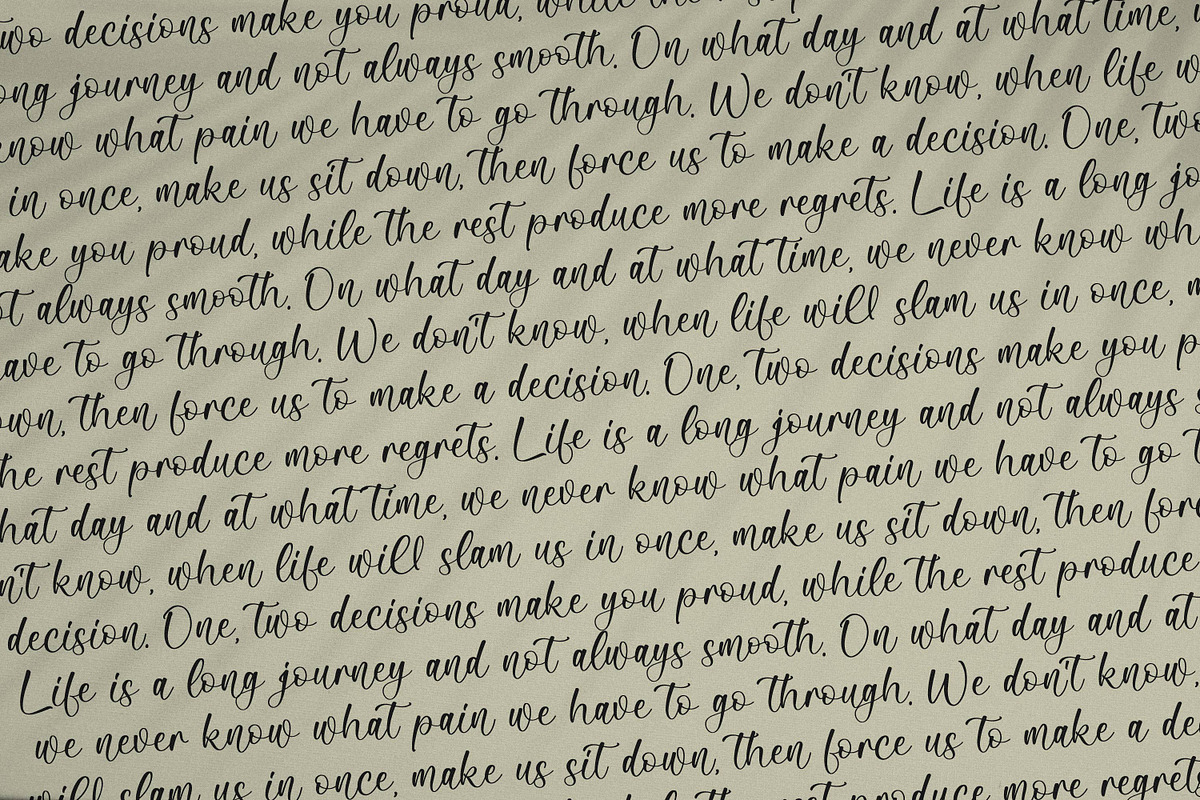 two decisions make you proud, while the rest
long journey and not always smooth. On what day and at what time,
know what pain we have to go through. We don't know, when life
in once, make us sit down, then force us to make a decision. One, two
make you proud, while the rest produce more regrets. Life is a long
not always smooth. On what day and at what time, we never know
have to go through. We don't know, when life will slam us in once,
down, then force us to make a decision. One, two decisions make you
the rest produce more regrets. Life is a long journey and not always
what day and at what time, we never know what pain we have to go
don't know, when life will slam us in once, make us sit down, then force
decision. One, two decisions make you proud, while the rest produce
Life is a long journey and not always smooth. On what day and at
we never know what pain we have to go through. We don't know,
will slam us in once, make us sit down, then force us to make a
produce more regrets